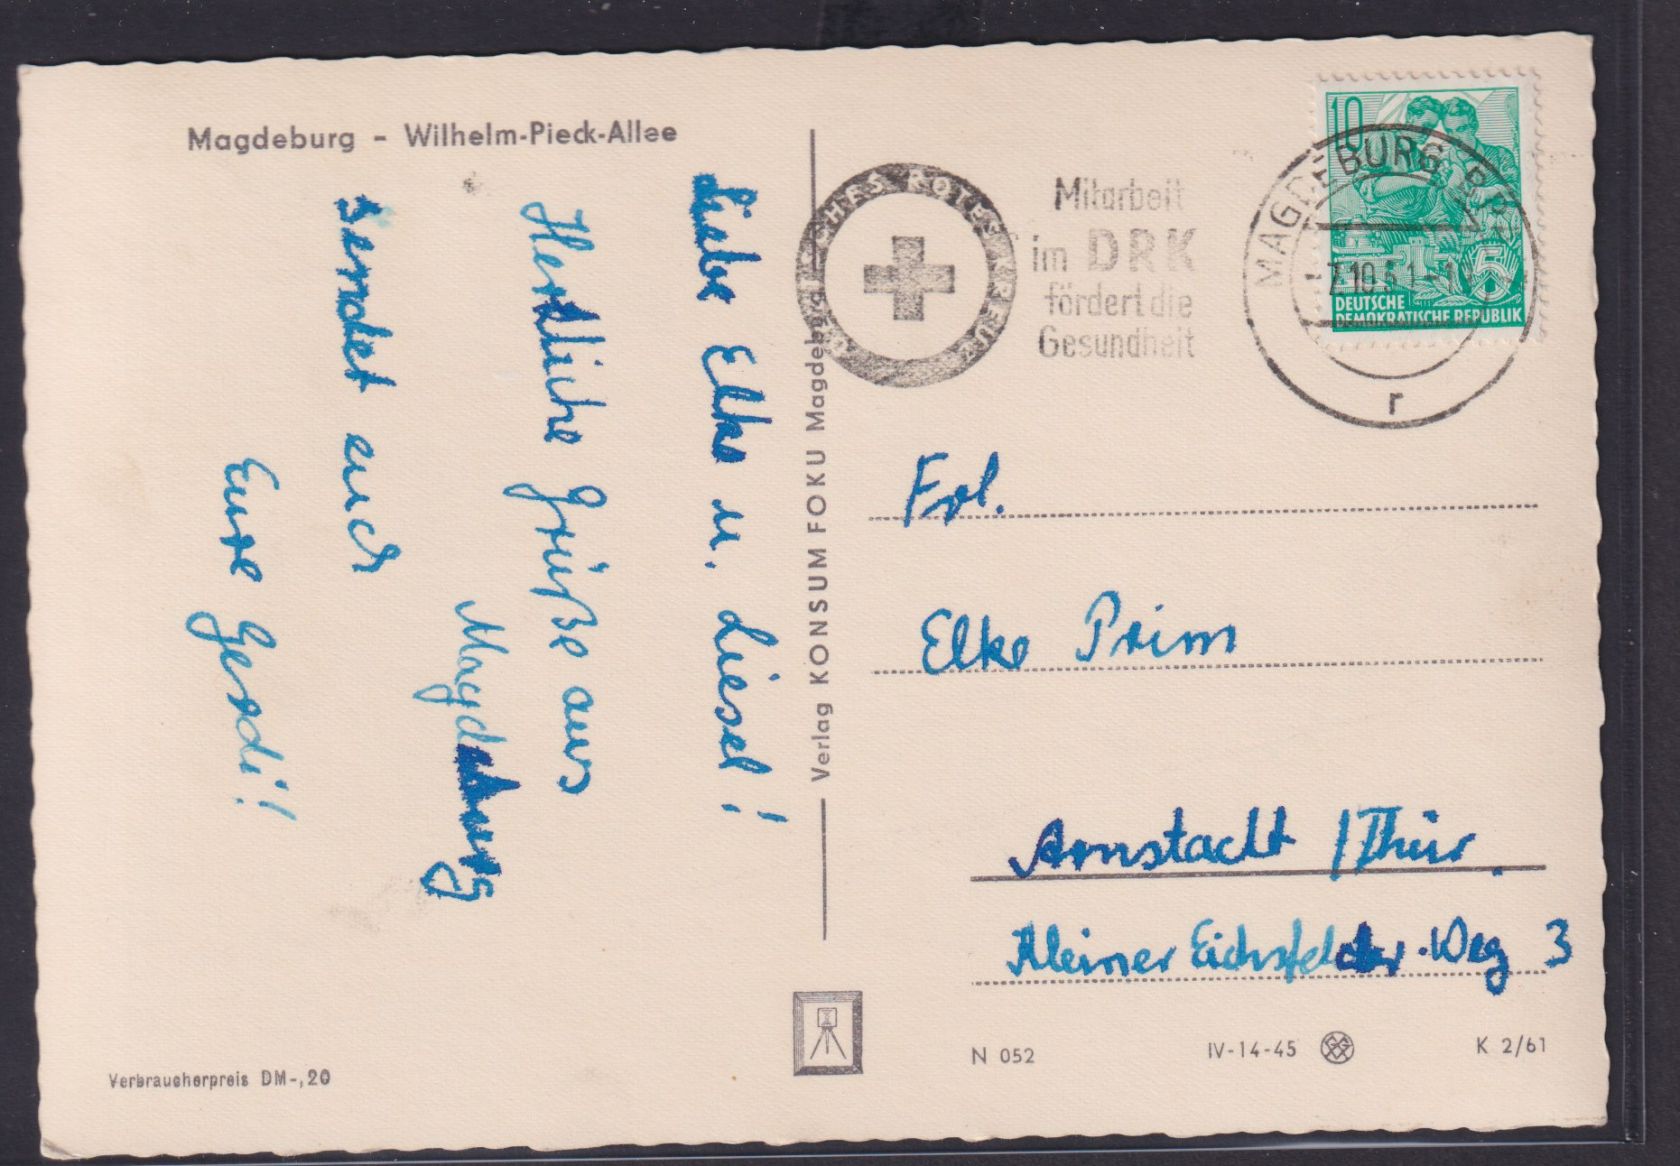 Magdeburg - Wilhelm-Pieck-Allee
Liebe Elke u. Liesel!
Herzliche Grüße aus
Magdeburg
sendet euch
Eure Gerdi!
Verbraucherpreis DM-,20
Verlag KONSUM FOKU Magdeburg
DEUTSCHES ROTES KREUZ
Mitarbeit
im DRK
fördert die
Gesundheit
MAGDEBURG
r
10
5
DEUTSCHE
DEMOKRATISCHE REPUBLIK
Frl.
Elke Prim
Arnstadt /Thür.
Kleiner Eichsfelder-Weg 3
N 052
IV-14-45
K 2/61